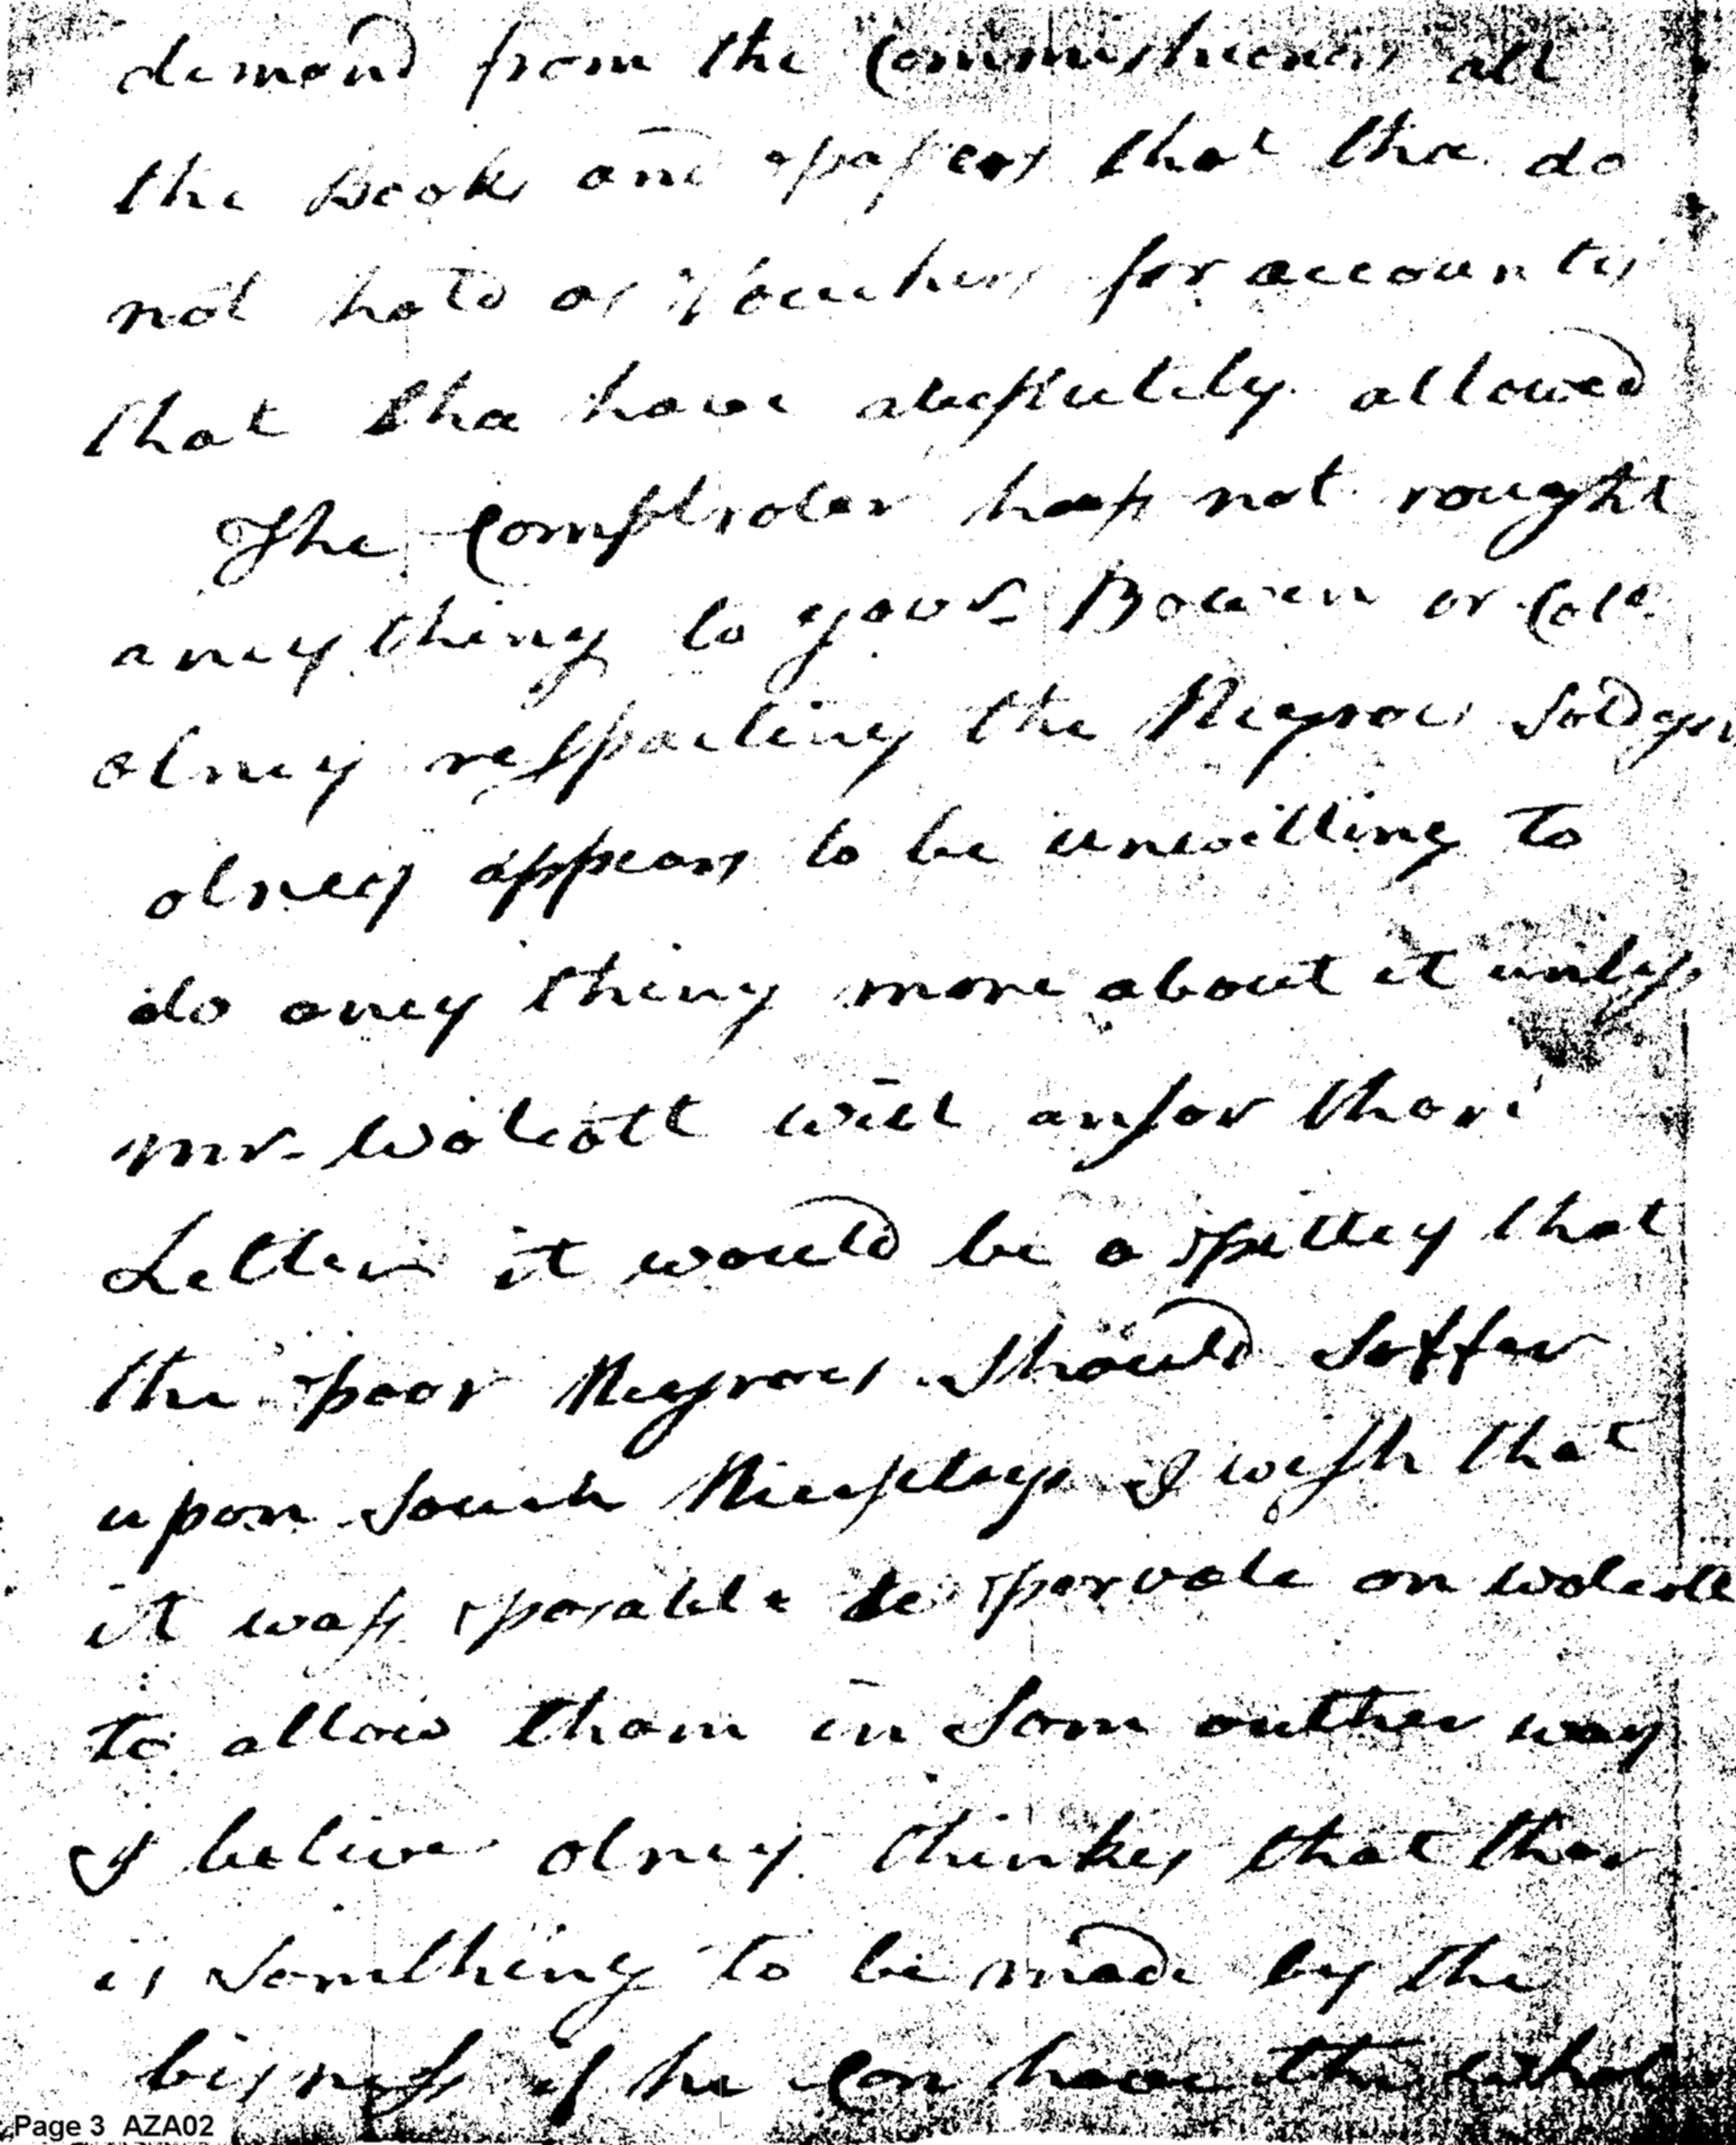 demand from the Commishieners all
the Books and papers that tha do
not hold as Vouchers for accounts
that tha have absolutely allowed
The Comptroler hass not rought
aney thing to gov.r Bowen or Colo.
olney respecting the Negroes Soldgers
olney appears to be unwilling to
do aney thing more about it unless
mr. Wolcott will ansor thare
Letters it would be a pittey that
the poor Negroes Should Soffer
upon Souch Neeglegs I wish that
it wass posable to parvale on wolcott
to allow tham in Som outher way
I belive olney thinkes that thar
is Somthing to be made by the
bisness if he Can have the whole
Page 3 AZA02